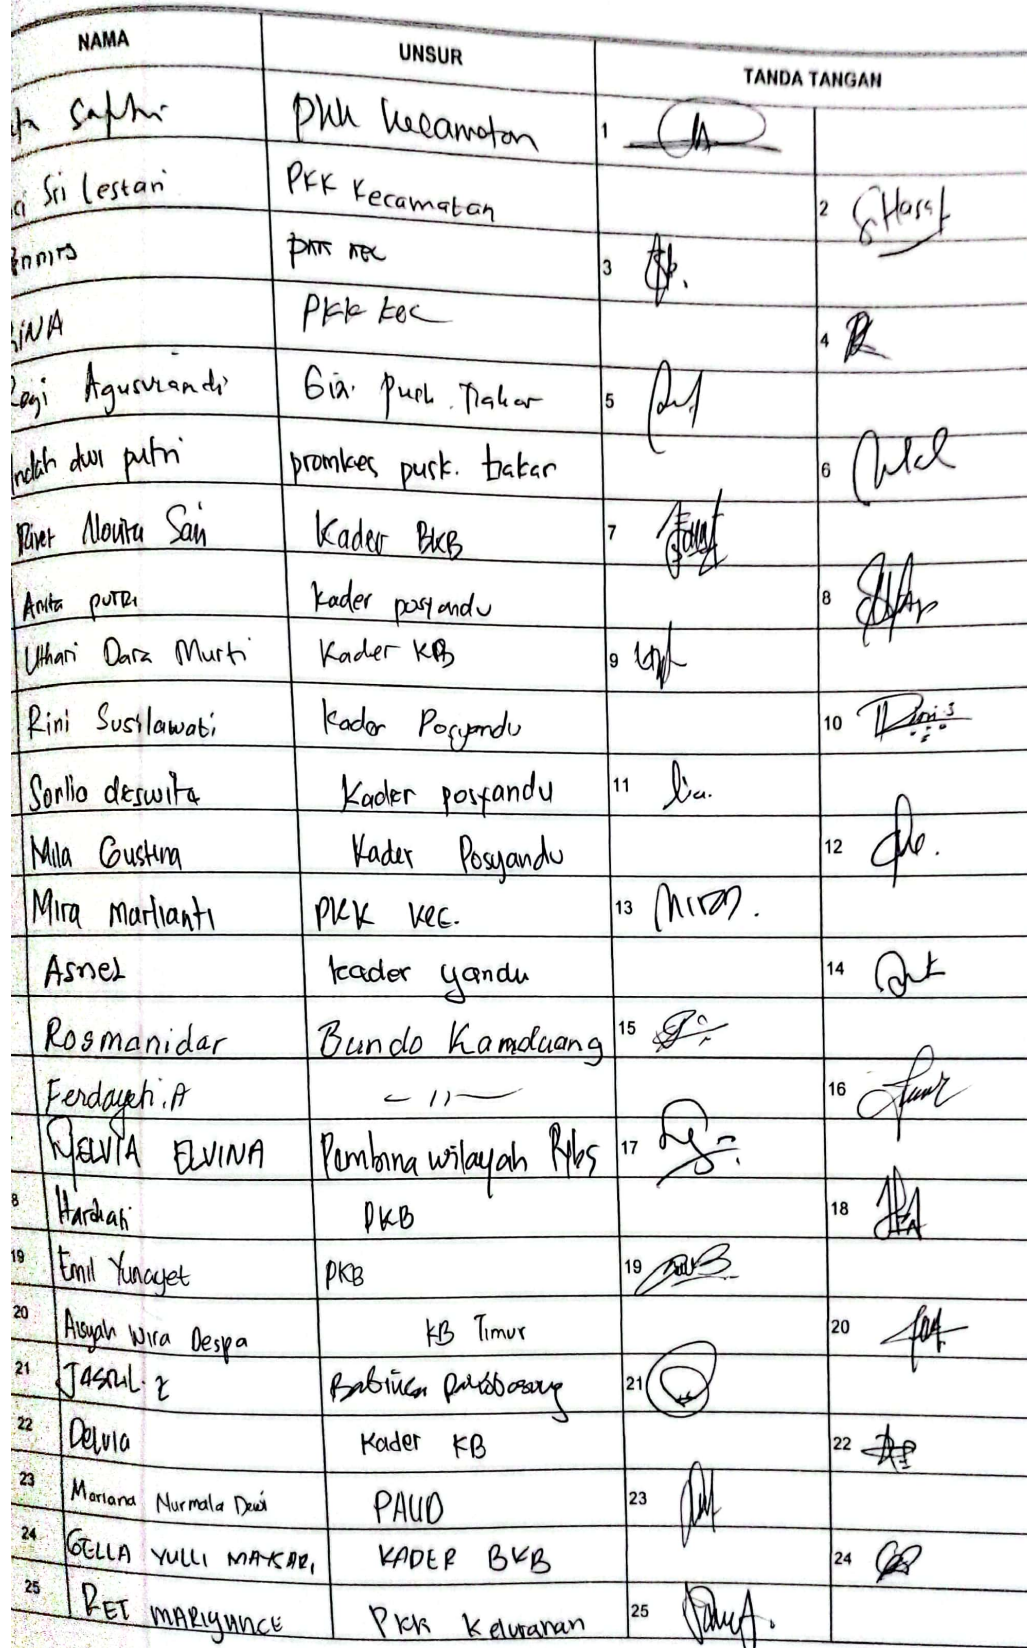 NAMA UNSUR TANDA TANGAN
PKK Kecamatan 1
Sri Lestari PKK Kecamatan 2
PKK KEC 3
PKK Kec 4
Agusviandi Gizi Pusk. 5
dwi putri promkes pusk. takar 6
Novita Sari Kader BKB 7
Anita PUTRI Kader posyandu 8
Uthari Dara Murti Kader KB 9
Rini Susilawati Kader Posyandu 10
deswita Kader posyandu 11
Mila Gustina Kader Posyandu 12
Mira Marlianti PKK Kec. 13
Asnel kader yandu 14
Rosmanidar Bundo Kanduang 15
Ferdayeti.A — 11 — 16
ELVINA Pembina wilayah 17
8 Hardiati PKB 18
19 Emil Yunayet PKB 19
20 Aisyah Wira Despa KB Timur 20
21 21
22 Delvia Kader KB 22
23 Mariana Nurmala Dewi PAUD 23
24 GELLA YULLI KADER BKB 24
25 PKK Kelurahan 25